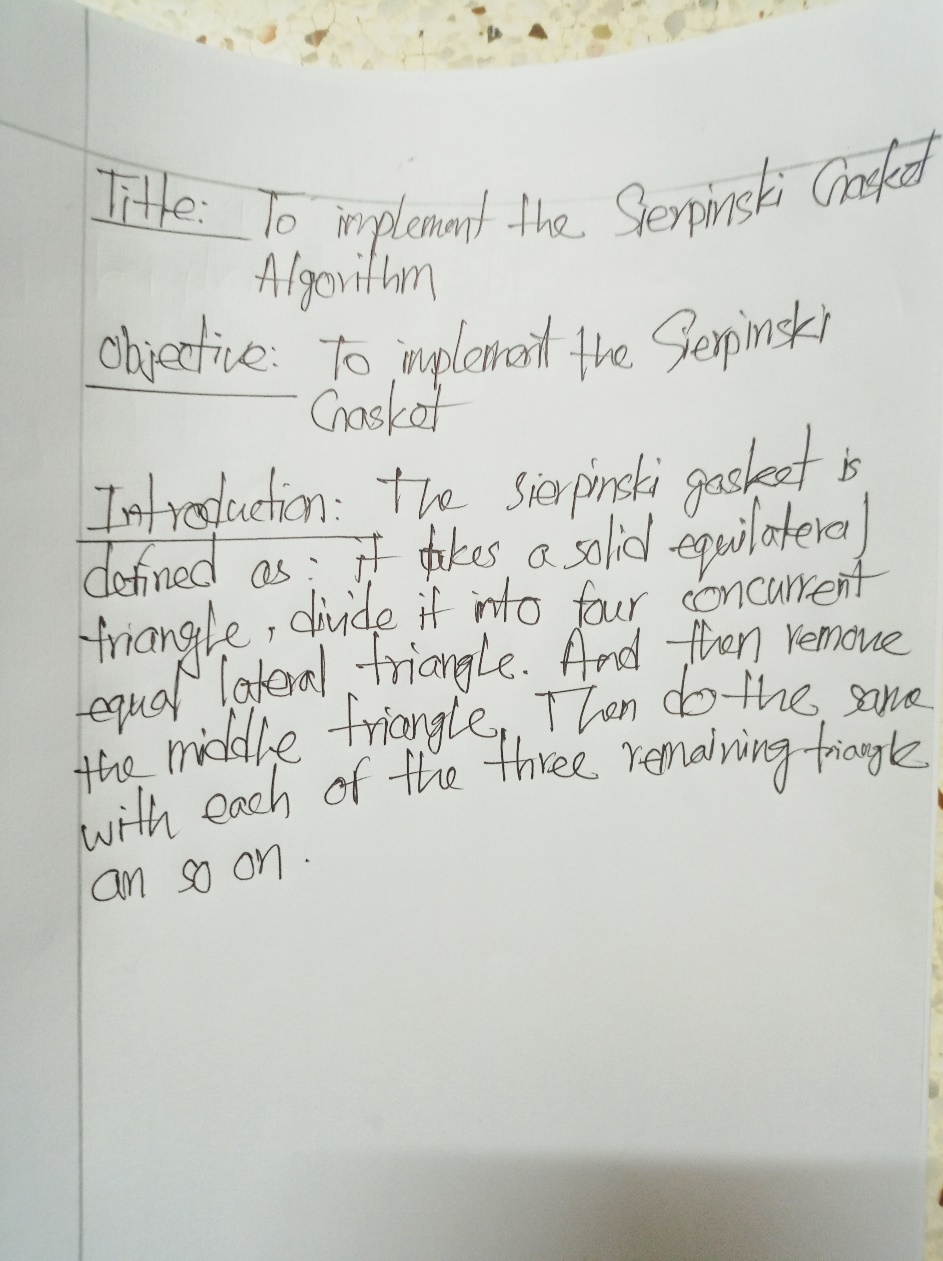 Title: To implement the Sierpinski Gasket
Algorithm
Objective: To implement the Sierpinski
Gasket
Introduction: The sierpinski gasket is
defined as: it takes a solid equilateral
triangle, divide it into four concurrent
equal lateral triangle. And then remove
the middle triangle. Then do the same
with each of the three remaining triangle
an so on.